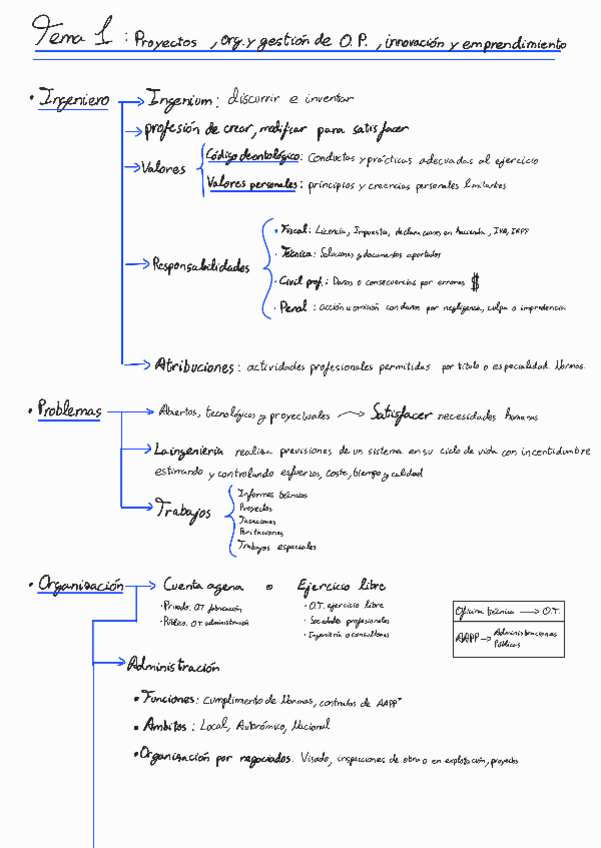 Tema 1: Proyectos, org. y gestión de O.P., innovación y emprendimiento
• Ingeniero → Ingenium: discurrir e inventar
→ profesión de crear, modificar para satisfacer
→ Valores { Código deontológico: Conductas y prácticas adecuadas al ejercicio
Valores personales: principios y creencias personales limitantes
→ Responsabilidades { • Fiscal: Licencia, Impuestos, declaraciones en hacienda, IVA, IRPF
• Técnica: Soluciones y documentos aportados
• Civil prof.: Danos o consecuencias por errores $
• Penal: acción u omisión con danos por negligencia, culpa o imprudencia
→ Atribuciones: actividades profesionales permitidas por título o especialidad. Normas.
• Problemas → Abiertos, tecnológicos y proyectuales → Satisfacer necesidades humanas
→ La ingeniería realiza previsiones de un sistema en su ciclo de vida con incertidumbre
estimando y controlando esfuerzos, coste, tiempo y calidad
→ Trabajos { Informes técnicos
Proyectos
Tasaciones
Peritaciones
Trabajos especiales
• Organización → Cuenta agena o Ejercicio libre
• Privado: OT fabricación
• Pública: OT administración
• O.T. ejercicio libre
• Sociedades profesionales
• Ingeniería o consultores
Oficina técnica → O.T.
AAPP → Administraciones
Públicas
→ Administración
• Funciones: Cumplimiento de Normas, contratos de AAPP*
• Ámbitos: Local, Autonómico, Nacional
• Organización por negociados. Visado, inspecciones de obra o en explotación, proyectos